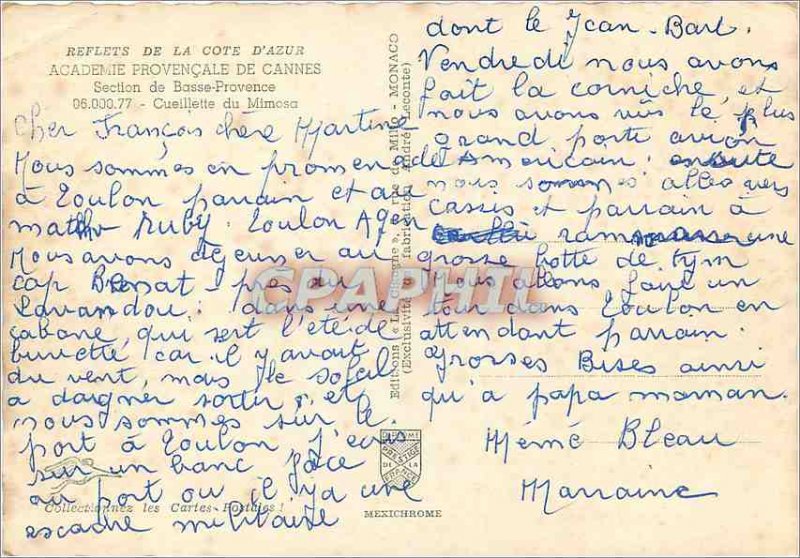 REFLETS DE LA COTE D'AZUR
ACADEMIE PROVENÇALE DE CANNES
Section de Basse-Provence
06.000.77 - Cueillette du Mimosa
Cher François chère Martine
Nous sommes en promenade
à Toulon parrain et a
Ruby. Toulon Agen
Nous avons déjeuner au
cap près du
Lavandou: dans une
cabane, qui sert l'été de
buvette car il y avait
du vent, mais le soleil
a daigner sortir, et
nous sommes sur le
port à Toulon j'ecris
sur un banc face
au port ou il y a une
escadre militaire
Collectionnez les Cartes Postales !
Editions « La Cigogne »
- MONACO
(Exclusivité fabrication André Leconte)
CPAPHIL
DIPLOME
PRESTIGE
DE LA
FRANCE
MEXICHROME
dont le Jean-Bart.
Vendredi nous avons
fait la corniche, et
nous avons vûs le plus
grand porte avion
Americain. ensuite
nous sommes allés vers
cassis et parrain à
une
grosse botte de tym
Nous allons faire un
tour dans Toulon en
attendant parrain.
Grosses Bises ainsi
qu'a papa maman.
Mémé Bleau
Marraine